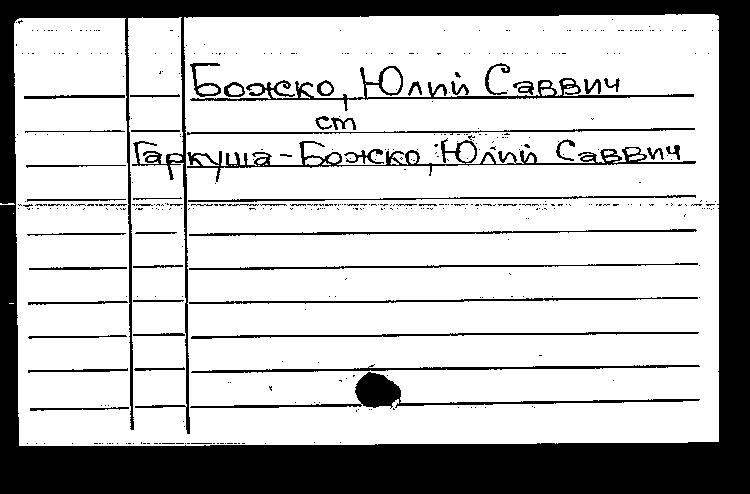 Божко, Юлий Саввич
ст
Гаркуша-Божко, Юлий Саввич